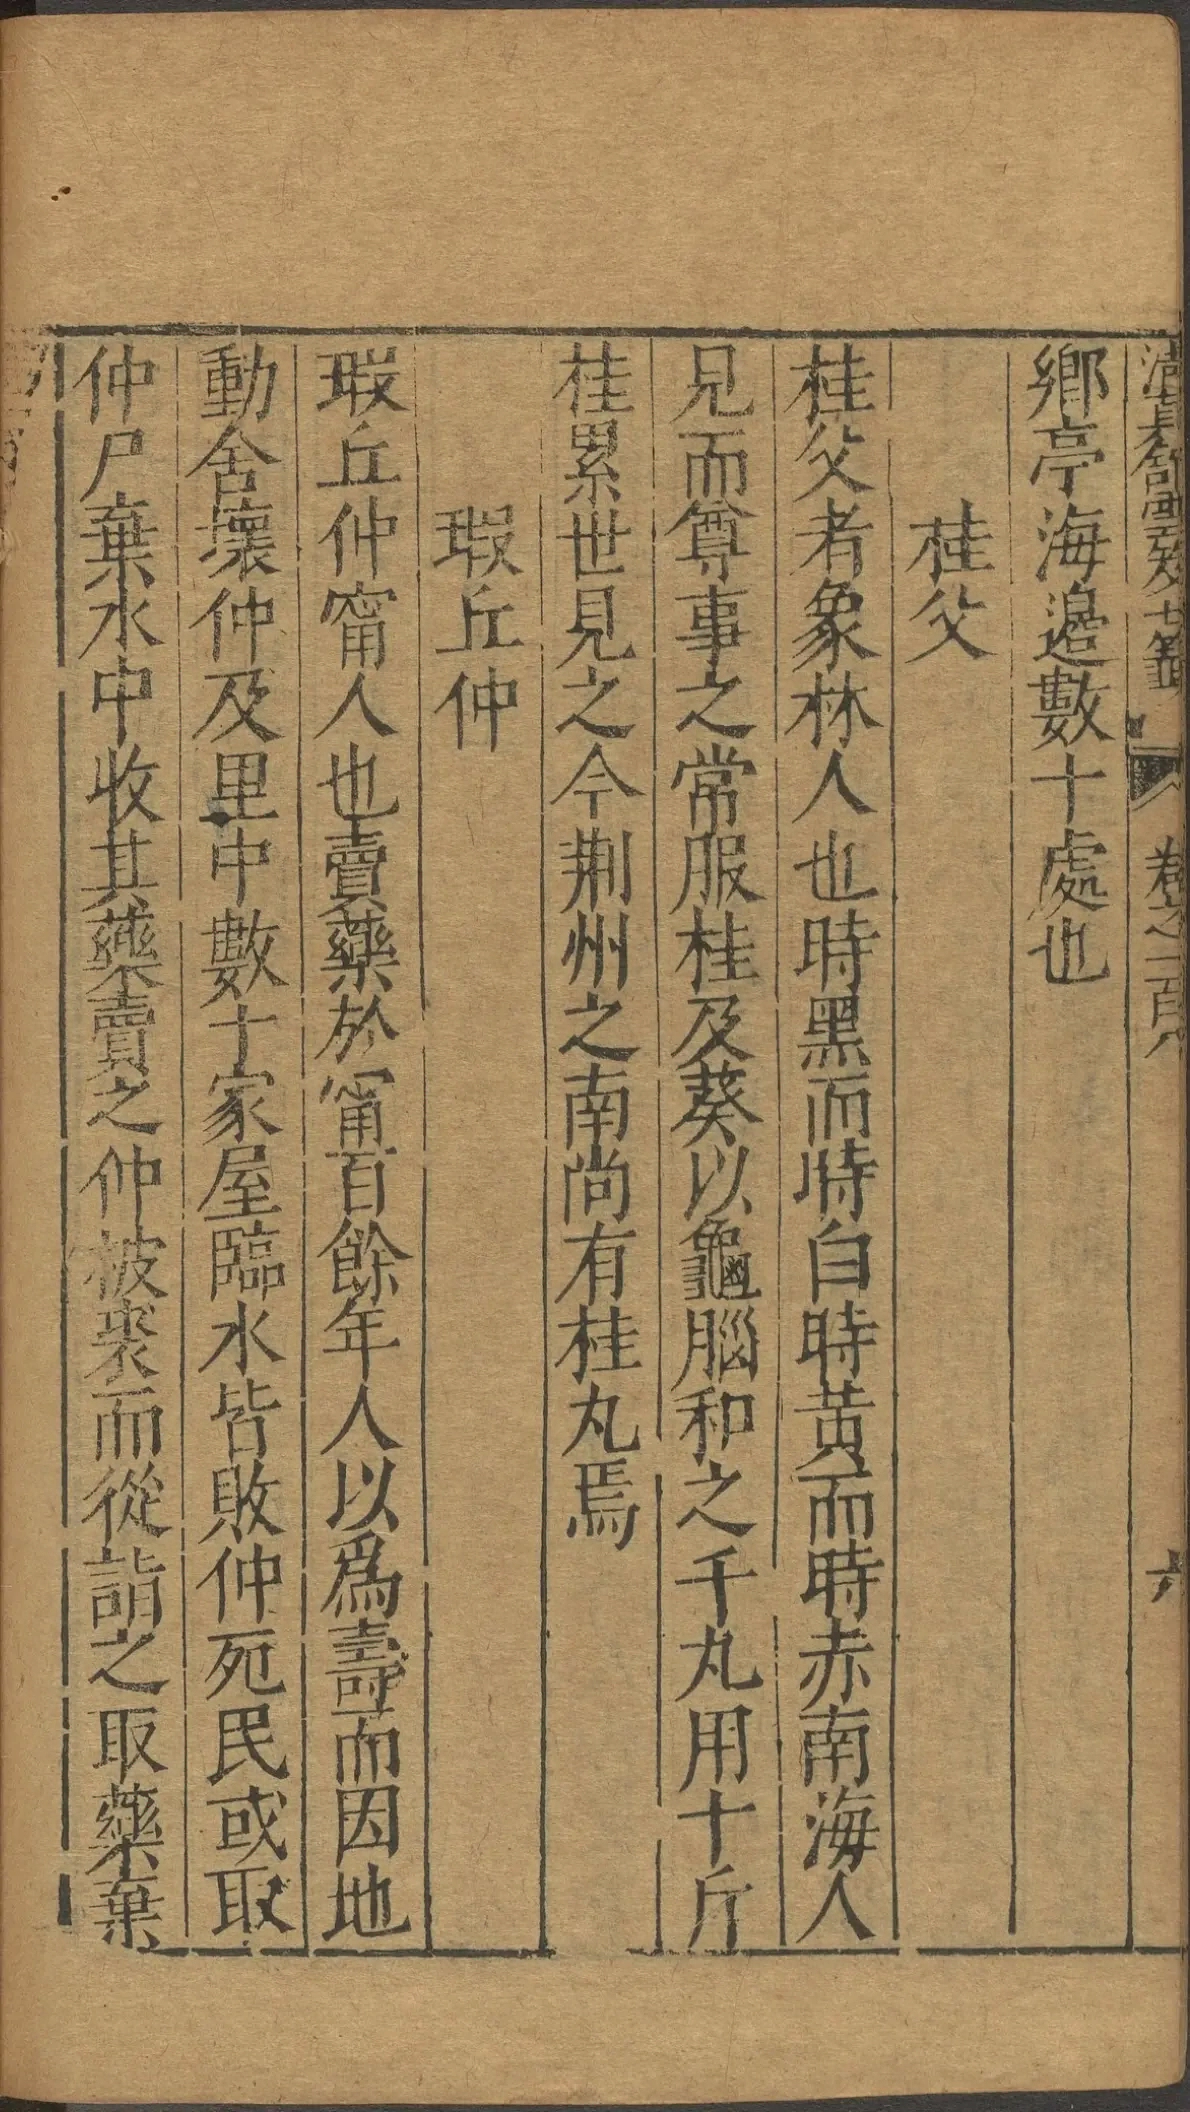 清真館雲笈七籤 卷之一百八 六
鄉亭海邉數十處也
桂父
桂父者象林人也時黑而時白時黄而時赤南海人
見而尊事之常服桂及葵以龜腦和之千丸用十斤
桂累世見之今荆州之南尚有桂丸焉
瑕丘仲
瑕丘仲甯人也賣藥於甯百餘年人以爲壽而因地
動舍壞仲及里中數十家屋臨水皆敗仲死民或取
仲尸棄水中收其藥賣之仲被裘而從詣之取藥棄